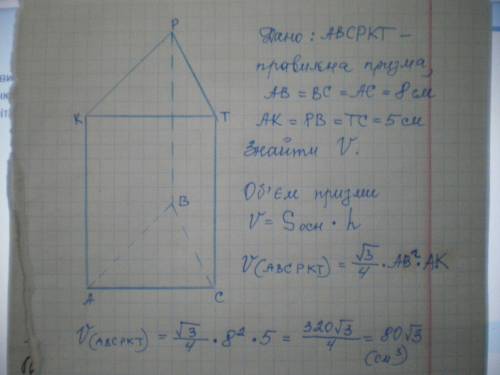 P
K
T
B
A
C
Дано: ABCPKT –
правильна призма,
AB = BC = AC = 8 см
AK = PB = TC = 5 см
Знайти V.
Об'єм призми
V = Sосн · h
V(ABCPKT) = √3/4 · AB² · AK
V(ABCPKT) = √3/4 · 8² · 5 = 320√3/4 = 80√3
(см³)